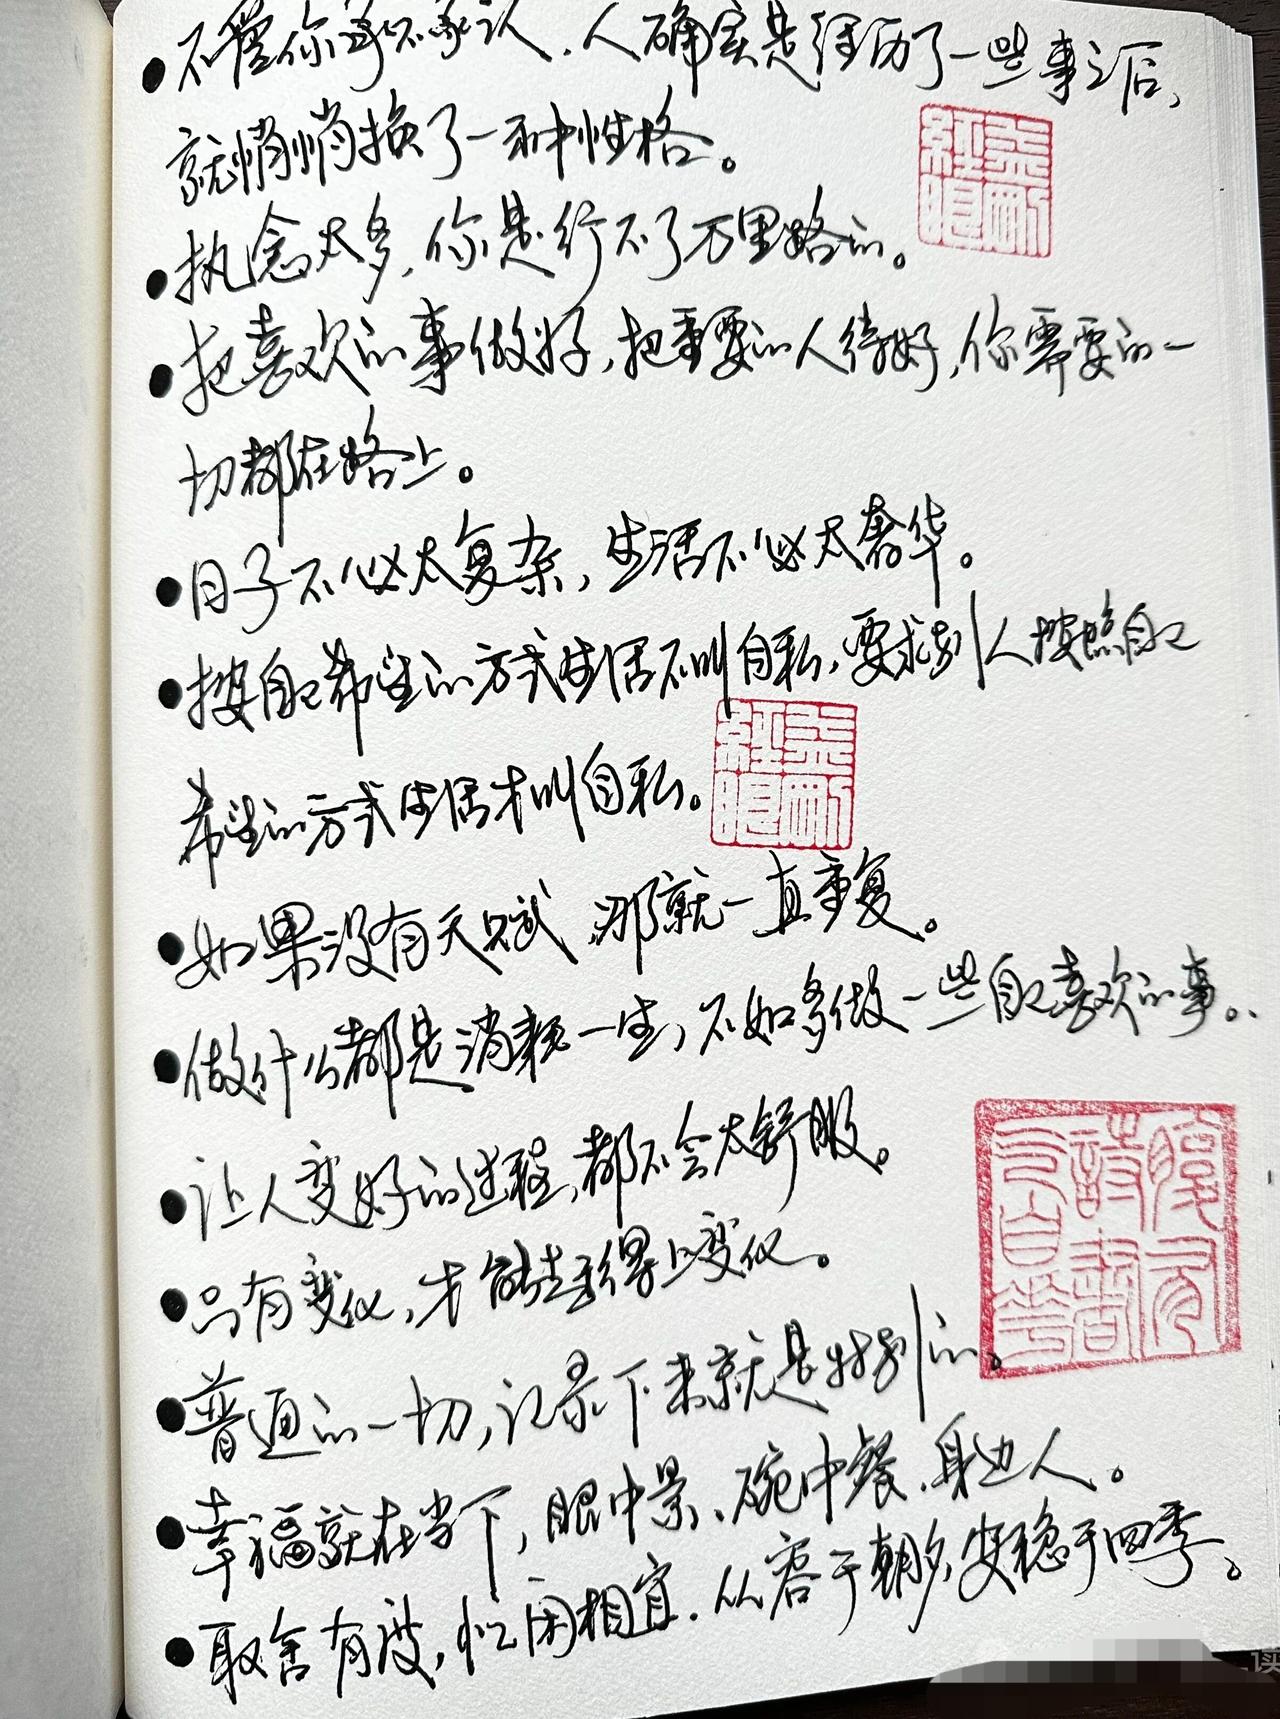 ●不管你承不承认，人确实是经历了一些事之后，
就悄悄换了一种性格。
●执念太多，你是行不了万里路的。
●把喜欢的事做好，把重要的人待好，你需要的一
切都在路上。
●日子不必太复杂，生活不必太奢华。
●按自己希望的方式生活不叫自私，要求别人按照自己
希望的方式生活才叫自私。
●如果没有天赋，那就一直重复。
●做什么都是消耗一生，不如多做一些自己喜欢的事。
●让人变好的过程，都不会太舒服。
●只有变优，才能走得上变优。
●普通的一切，记录下来就是特别的。
●幸福就在当下，眼中景、碗中餐、身边人。
●取舍有度，忙闲相宜，从容于朝夕，安稳于四季。
腹有
詩書
气自華
读